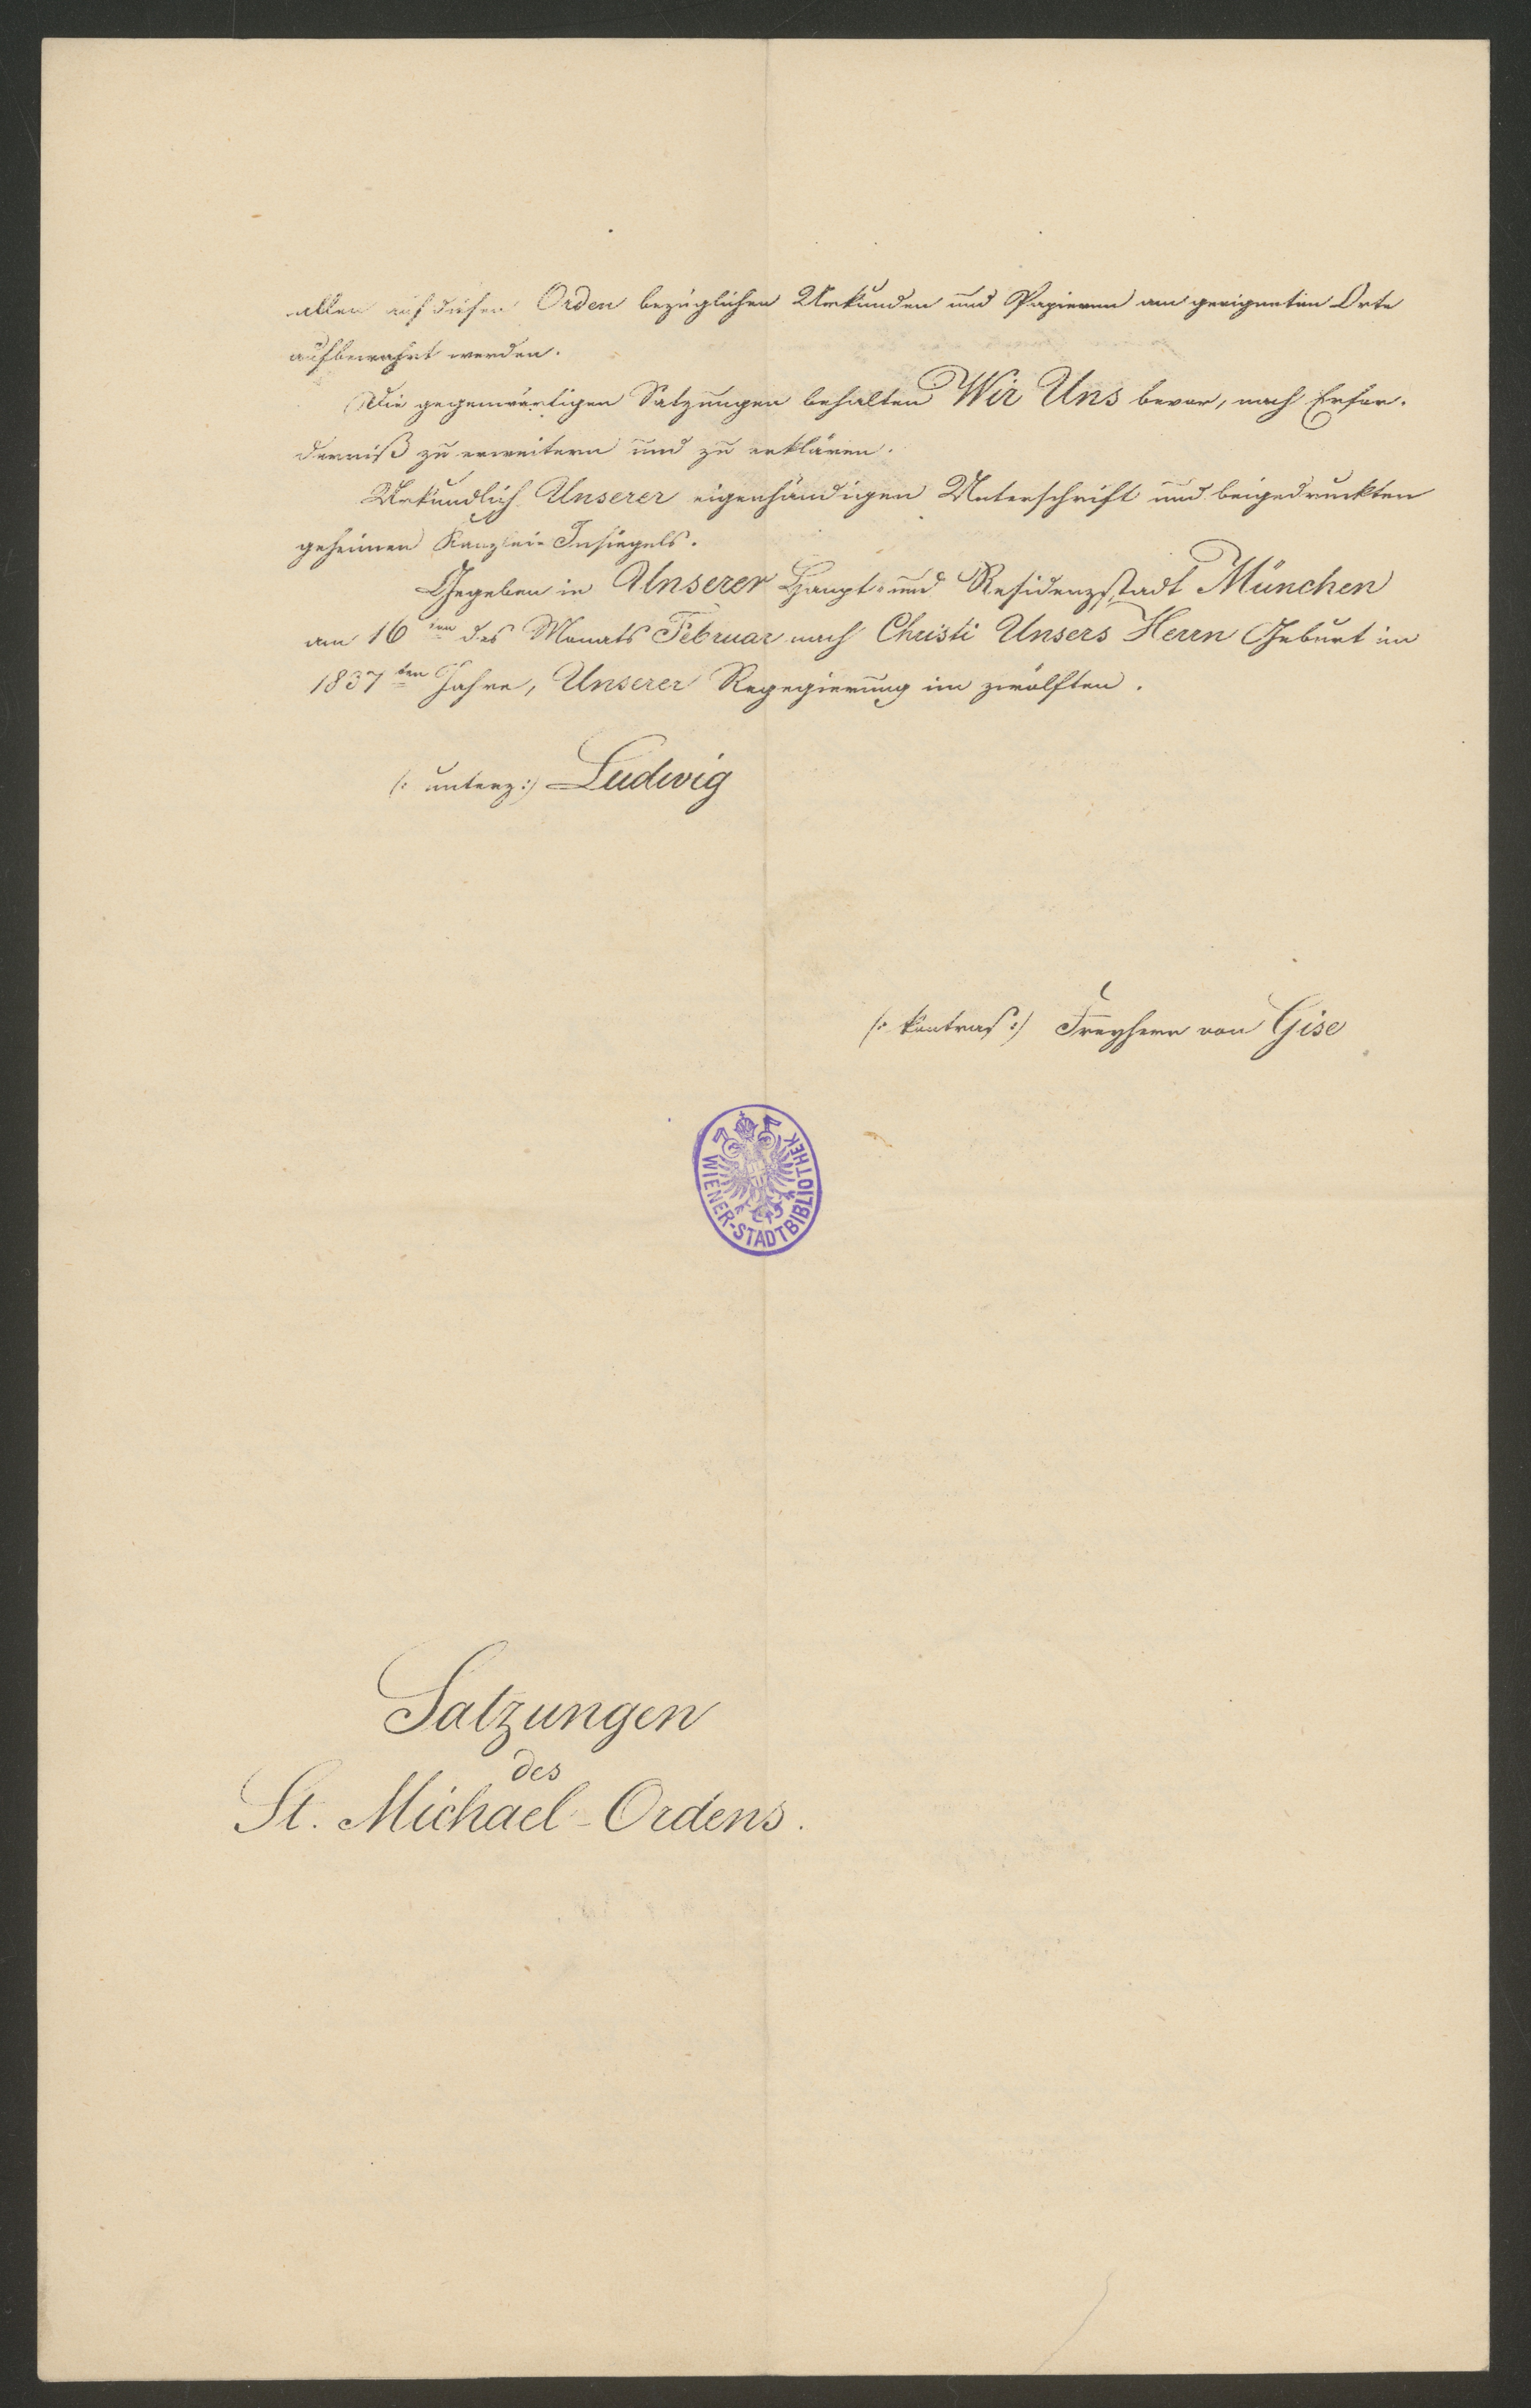 allen auf diesen Orden bezüglichen Urkunden und Papieren am geeigneten Orte
aufbewahrt werden.
Die gegenwärtigen Satzungen behalten Wir Uns bevor, nach Erfor-
derniß zu erweitern und zu erklären.
Urkundlich Unserer eigenhändigen Unterschrift und beigedruckten
geheimen Kanzlei-Insiegels.
Gegeben in Unserer Haupt- und Residenzstadt München
am 16ten des Monats Februar nach Christi Unsers Herrn Geburt im
1837ten Jahre, Unserer Regegierung im zwölften.
(: unterz:) Ludwig
(: kontras:) Freyherr von Gise
WIENER-STADTBIBLIOTHEK
Satzungen
des
St. Michael-Ordens.